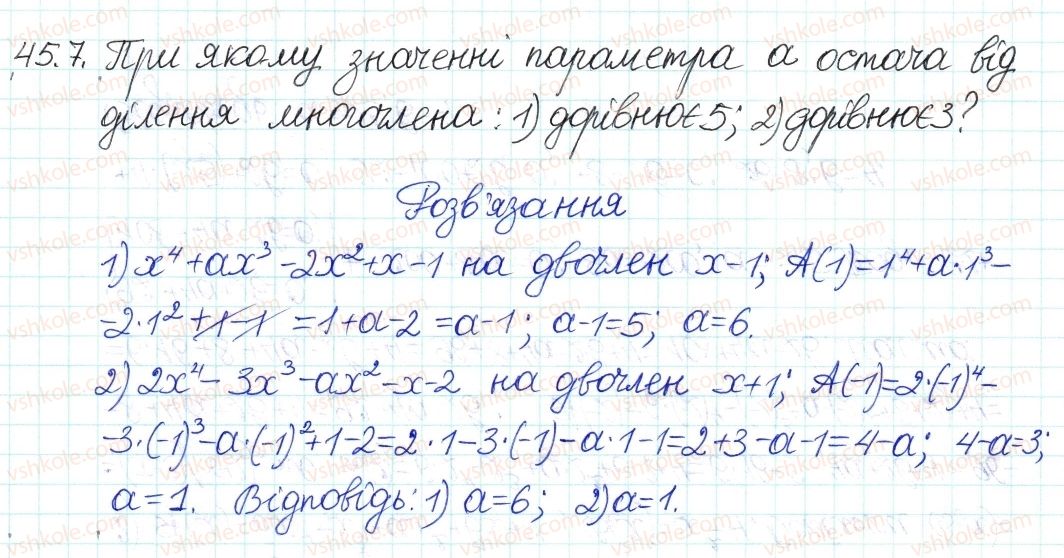 45.7. При якому значенні параметра а остача від
ділення многочлена: 1) дорівнює 5; 2) дорівнює 3?
Розв'язання
1) x⁴+ax³-2x²+x-1 на двочлен x-1; A(1)=1⁴+a·1³-
-2·1²+1-1 =1+a-2=a-1; a-1=5; a=6.
2) 2x⁴-3x³-ax²-x-2 на двочлен x+1; A(-1)=2·(-1)⁴-
-3·(-1)³-a·(-1)²+1-2=2·1-3·(-1)-a·1-1=2+3-a-1=4-a; 4-a=3;
a=1. Відповідь: 1) a=6; 2) a=1.